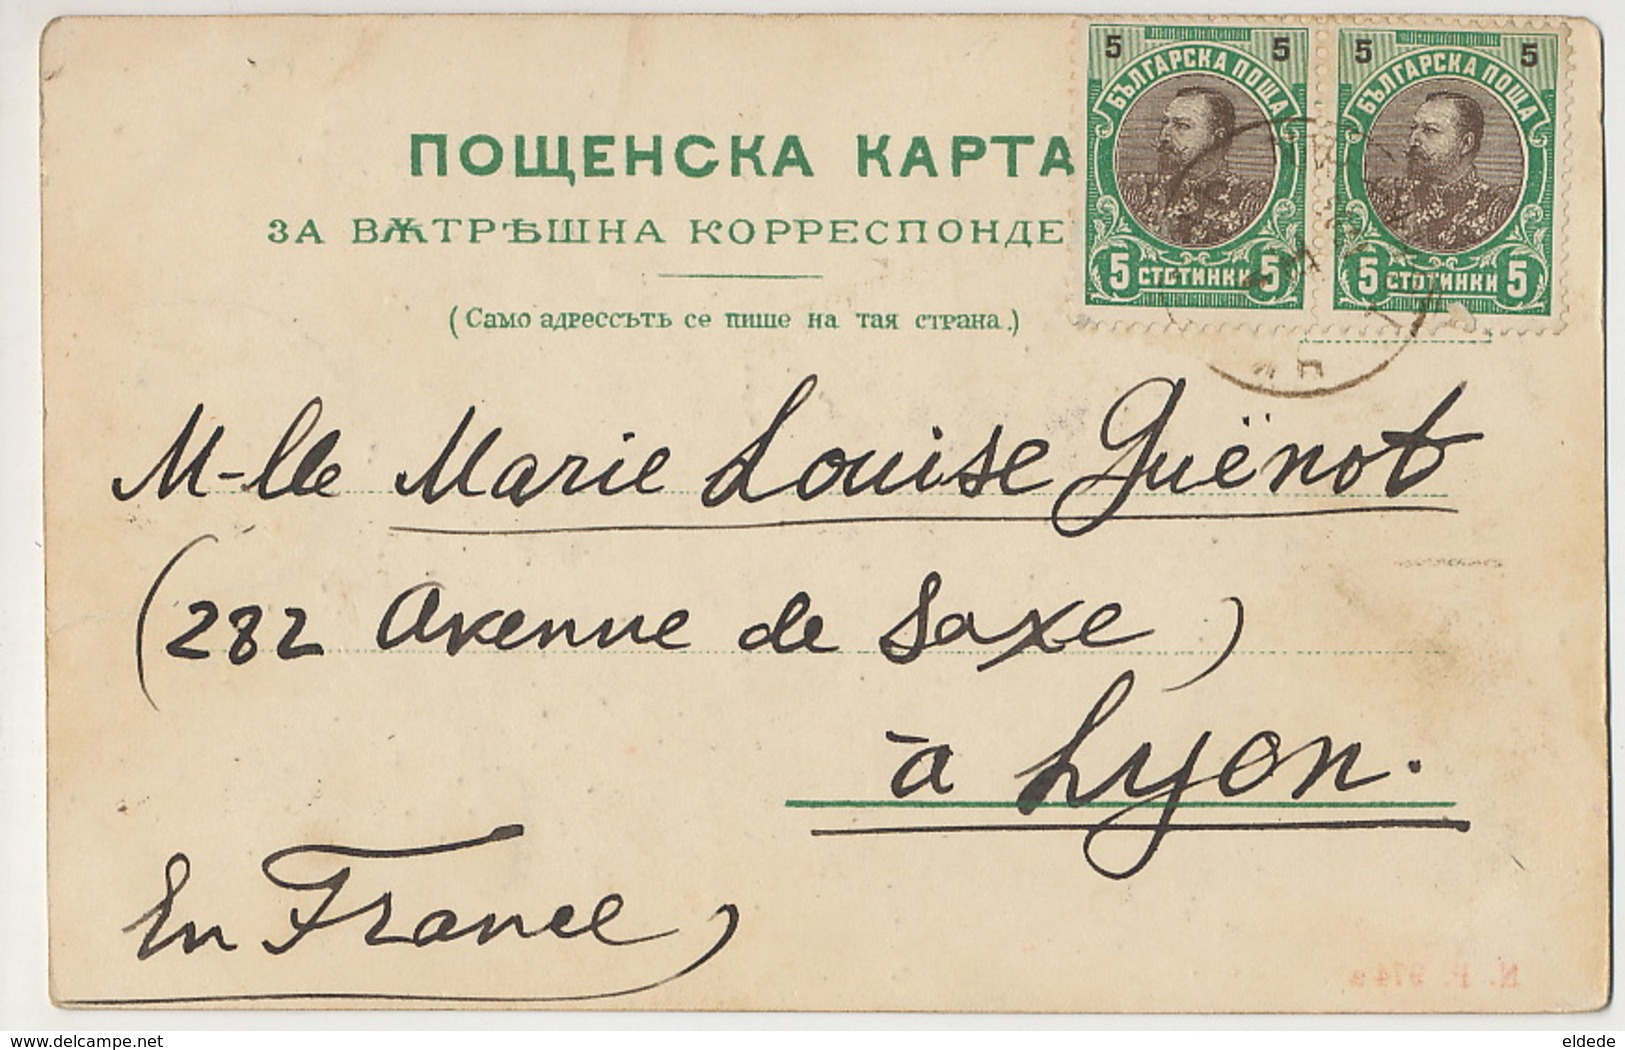 5 5
БЪЛГАРСКА ПОЩА
5 СТОТИНКИ 5
5 5
БЪЛГАРСКА ПОЩА
5 СТОТИНКИ 5
ПОЩЕНСКА КАРТА
ЗА ВѪТРѢШНА КОРРЕСПОНДЕ
(Само адрессътъ се пише на тая страна.)
M-lle Marie Louise Guënot
(282 Avenue de Saxe)
à Lyon.
En France
N. P. 974 a
delcampe.net
eldede